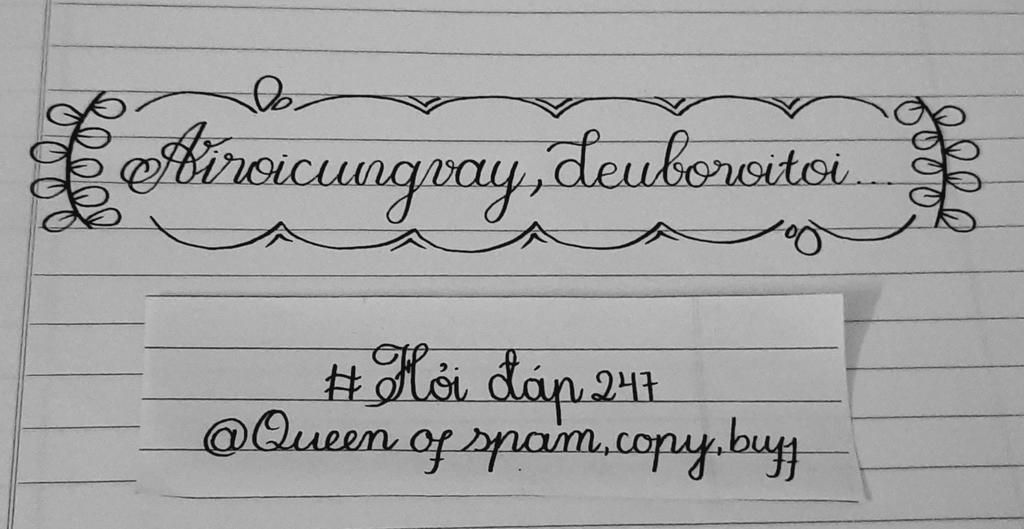 Airoicungvay, deuboroitoi...
#Hỏi đáp 247
@Queen of spam, copy, buff